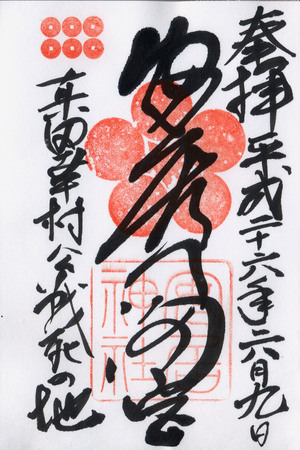 奉拝 平成二十六年六月九日
安居神社
真田幸村公戦死の地